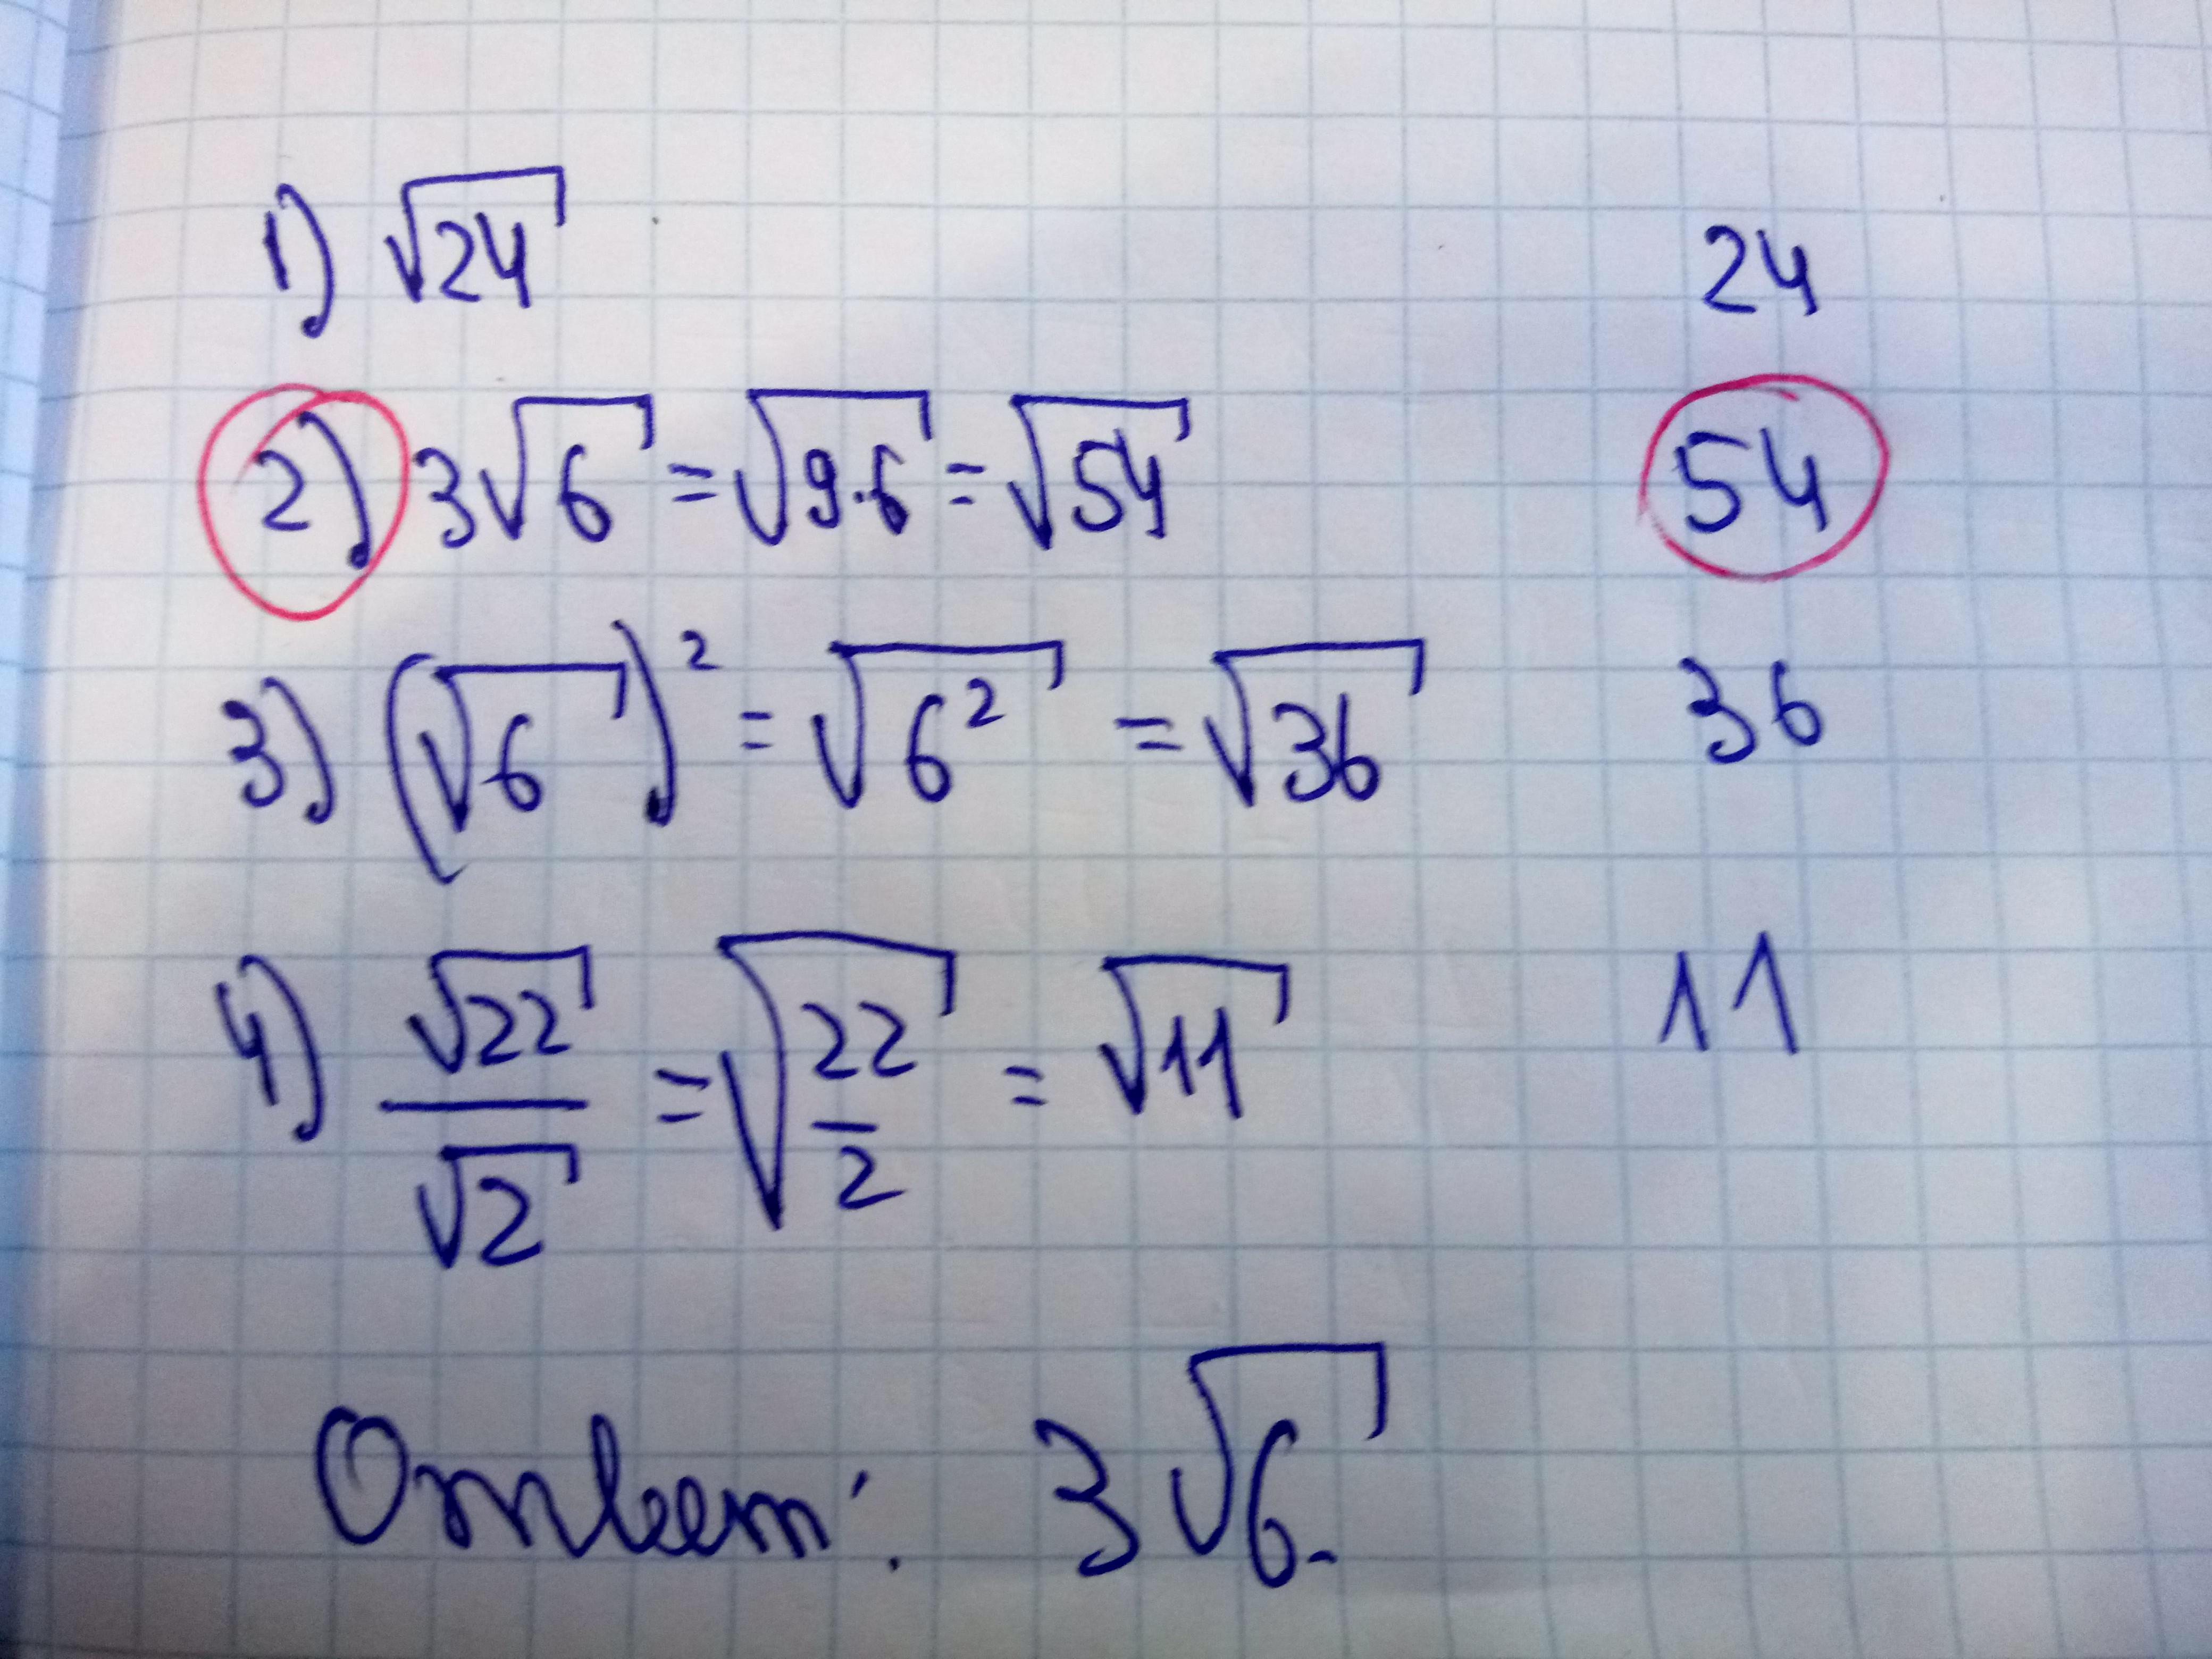 1) √24 24
2) 3√6 = √9·6 = √54 54
3) (√6)² = √6² = √36 36
4) √22/√2 = √22/2 = √11 11
Ответ: 3√6.